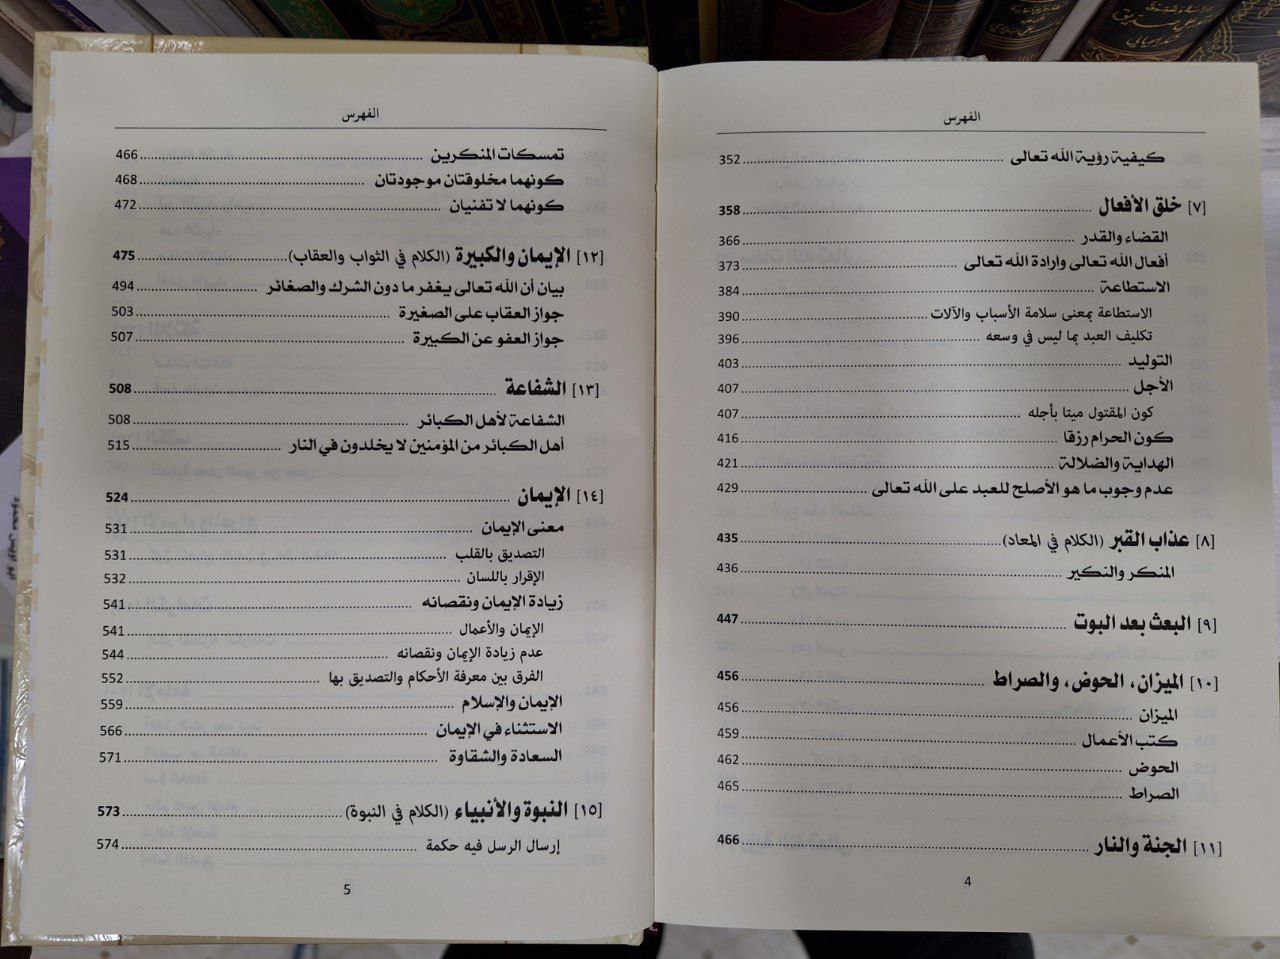 الفهرس
كيفية رؤية الله تعالى ........ 352
[٧] خلق الأفعال ........ 358
القضاء والقدر ........ 366
أفعال الله تعالى وارادة الله تعالى ........ 373
الاستطاعة ........ 384
الاستطاعة بمعنى سلامة الأسباب والآلات ........ 390
تكليف العبد بما ليس في وسعه ........ 396
التوليد ........ 403
الأجل ........ 407
كون المقتول ميتا بأجله ........ 407
كون الحرام رزقا ........ 416
الهداية والضلالة ........ 421
عدم وجوب ما هو الأصلح للعبد على الله تعالى ........ 429
[٨] عذاب القبر (الكلام في المعاد) ........ 435
المنكر والنكير ........ 436
[٩] البعث بعد البوت ........ 447
[١٠] الميزان، الحوض، والصراط ........ 456
الميزان ........ 456
كتب الأعمال ........ 459
الحوض ........ 462
الصراط ........ 465
[١١] الجنة والنار ........ 466
4
الفهرس
تمسكات المنكرين ........ 466
كونهما مخلوقتان موجودتان ........ 468
كونهما لا تفنيان ........ 472
[١٢] الإيمان والكبيرة (الكلام في الثواب والعقاب) ........ 475
بيان أن الله تعالى يغفر ما دون الشرك والصغائر ........ 494
جواز العقاب على الصغيرة ........ 503
جواز العفو عن الكبيرة ........ 507
[١٣] الشفاعة ........ 508
الشفاعة لأهل الكبائر ........ 508
أهل الكبائر من المؤمنين لا يخلدون في النار ........ 515
[١٤] الإيمان ........ 524
معنى الإيمان ........ 531
التصديق بالقلب ........ 531
الإقرار باللسان ........ 532
زيادة الإيمان ونقصانه ........ 541
الإيمان والأعمال ........ 541
عدم زيادة الإيمان ونقصانه ........ 544
الفرق بين معرفة الأحكام والتصديق بها ........ 552
الإيمان والإسلام ........ 559
الاستثناء في الإيمان ........ 566
السعادة والشقاوة ........ 571
[١٥] النبوة والأنبياء (الكلام في النبوة) ........ 573
إرسال الرسل فيه حكمة ........ 574
5